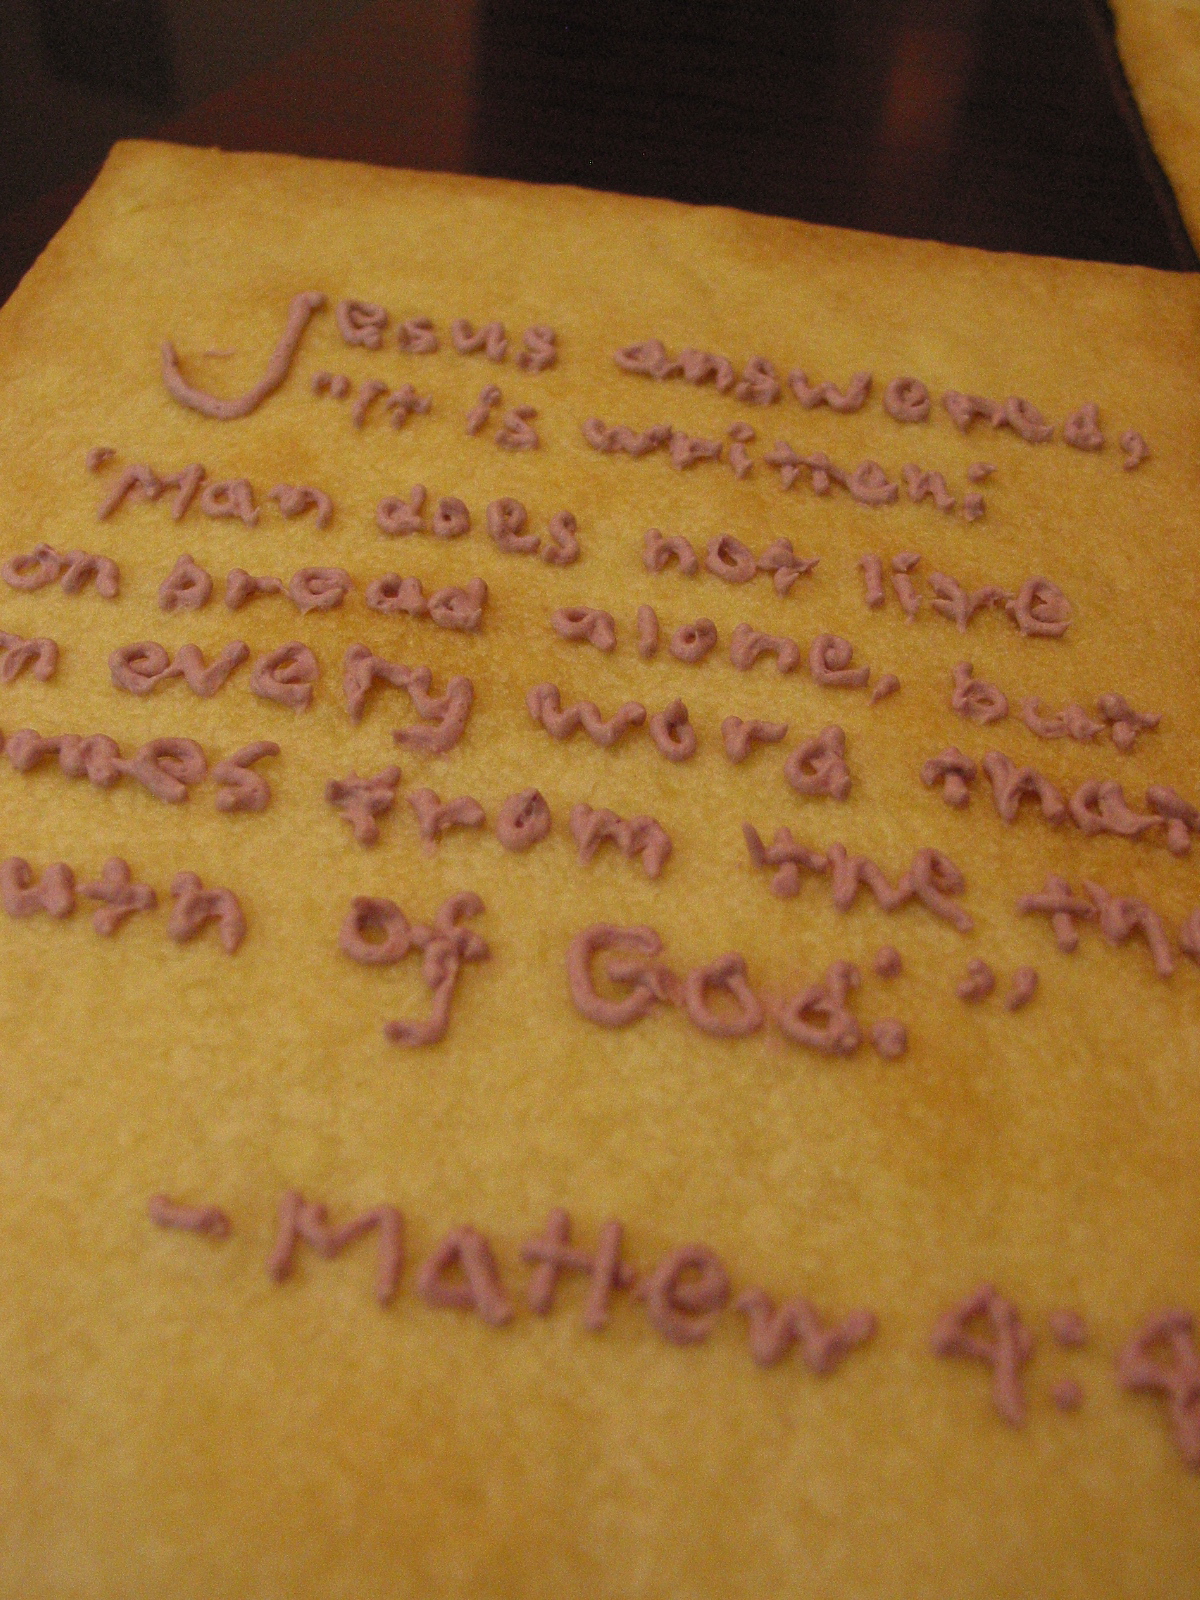 Jesus answered,
"It is written:
'Man does not live
on bread alone, but
on every word that
comes from the
mouth of God.'"
-Mattew 4:4